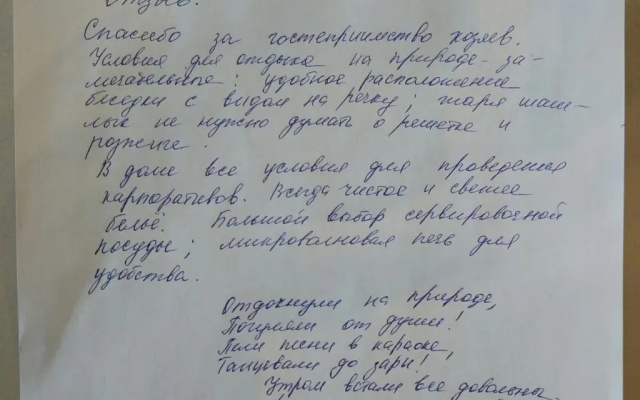 Отзыв.
Спасибо за гостеприимство хозяев.
Условия для отдыха на природе - за-
мечательные: удобное расположение
беседки с видом на речку; жаря шаш-
лык не нужно думать о решетке и
розжиге.
В доме все условия для проведения
карпоративов. Всегда чистое и свежее
бельё. Большой выбор сервировочной
посуды; микроволновая печь для
удобства.
Отдохнули на природе,
Погуляли от души!
Пели песни в караоке,
Танцевали до зари!
Утром встали все довольны